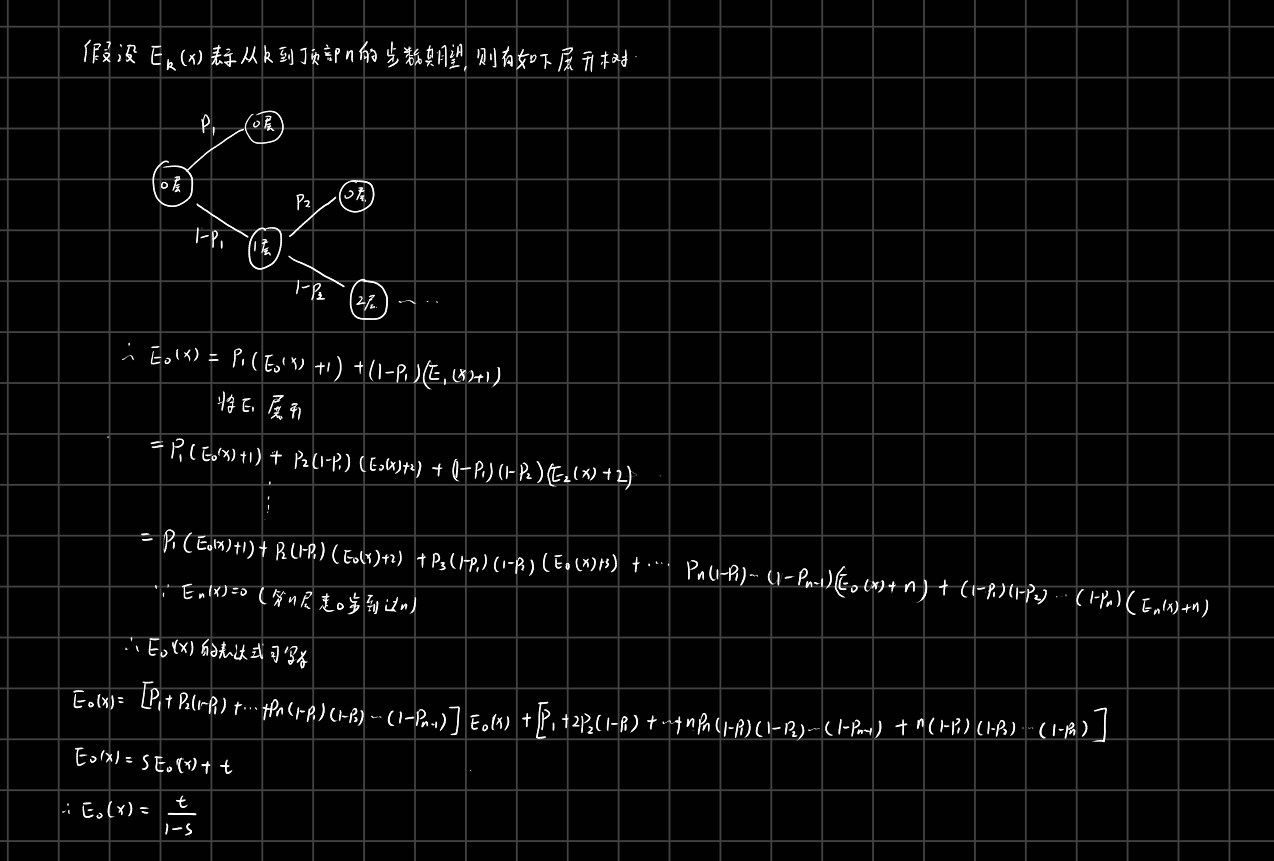 假设 E_k(x) 表示从k到顶部n的步数期望, 则有如下展开树
P₁
0层
0层
P₂
0层
1-P₁
1层
1-P₂
2层 ……
∴ E₀(x) = P₁(E₀(x)+1) + (1-P₁)(E₁(x)+1)
将E₁ 展开
= P₁(E₀(x)+1) + P₂(1-P₁)(E₀(x)+2) + (1-P₁)(1-P₂)(E₂(x)+2)
⋮
= P₁(E₀(x)+1) + P₂(1-P₁)(E₀(x)+2) + P₃(1-P₁)(1-P₂)(E₀(x)+3) + … Pₙ(1-P₁)…(1-Pₙ₋₁)(E₀(x)+n) + (1-P₁)(1-P₂)…(1-Pₙ)(Eₙ(x)+n)
∵ Eₙ(x)=0 (第n层走0步到达n)
∴ E₀(x) 的表达式可写为
E₀(x) = [P₁+P₂(1-P₁)+…+Pₙ(1-P₁)(1-P₂)…(1-Pₙ₋₁)] E₀(x) + [P₁+2P₂(1-P₁)+…+nPₙ(1-P₁)(1-P₂)…(1-Pₙ₋₁) + n(1-P₁)(1-P₂)…(1-Pₙ)]
E₀(x) = SE₀(x) + t
∴ E₀(x) = t/(1-s)